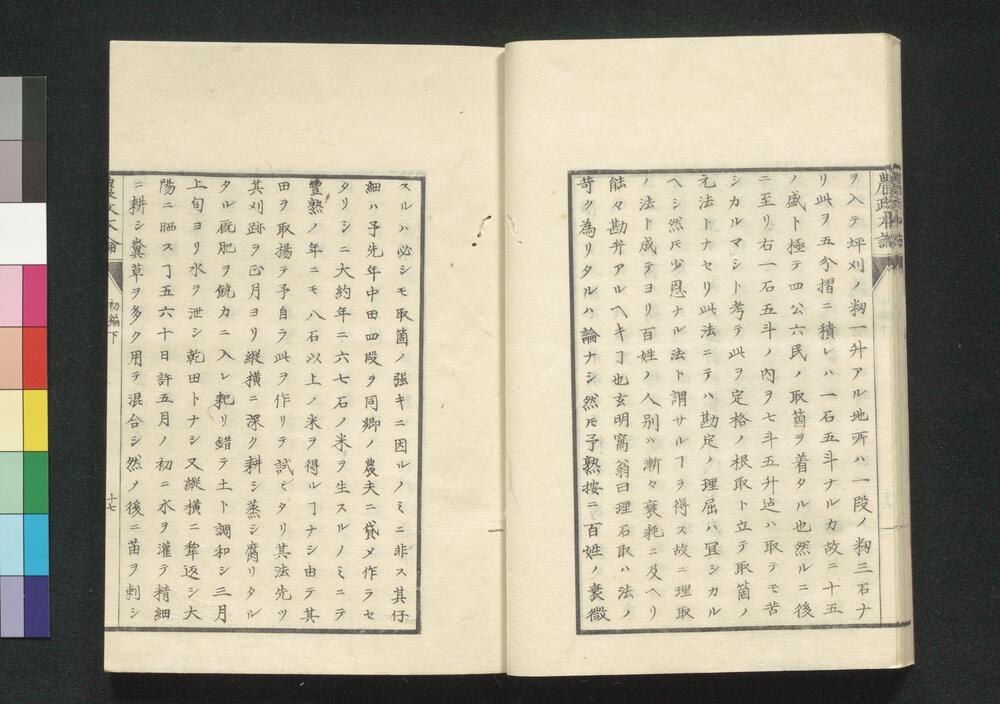 農政本論
ヲ入テ坪刈ノ籾一升アル地所ハ一段ノ籾三石ナ
リ此ヲ五分摺ニ積レハ一石五斗ナルカ故ニ十五
ノ盛ト極テ四公六民ノ取箇ヲ着タル也然ルニ後
ニ至リ右一石五斗ノ内ヲ七斗五升迠ハ取テモ苦
シカルマシト考テ此ヲ定格ノ根取ト立テ取箇ノ
元法トナセリ此法ニテハ勘定ノ理屈ハ冝シカル
ヘシ然𪜈少恩ナル法ト謂サルヿヲ得ス故ニ理取
ノ法ト成テヨリ百姓ノ人別ハ漸々衰耗ニ及ヘリ
能々勘弁アルヘキヿ也玄明窩翁曰理石取ハ法ノ
苛ク為リタルハ論ナシ然𪜈予熟按ニ百姓ノ衰微
スルハ必シモ取箇ノ强キニ因ルノミニ非ス其仔
細ハ予先年中田四段ヲ同郷ノ農夫ニ貸メ作ラセ
タリシニ大約年ニ六七石ノ米ヲ生スルノミニテ
豐熟ノ年ニモ八石以上ノ米ヲ得ルヿナシ由テ其
田ヲ取揚テ予自ラ此ヲ作リテ試ミタリ其法先ツ
其刈跡ヲ正月ヨリ縱横ニ深ク耕シ蒸シ腐リタル
タル厩肥ヲ饒カニ入レ耙リ錯テ土ト調和シ三月
上旬ヨリ水ヲ泄シ乾田トナシ又縱横ニ犂返シ大
陽ニ晒スヿ五六十日許五月ノ初ニ水ヲ灌テ精細
ニ耕シ糞草ヲ多ク用テ混合シ然メ後ニ苗ヲ刺シ
農政本論
初編下
十七